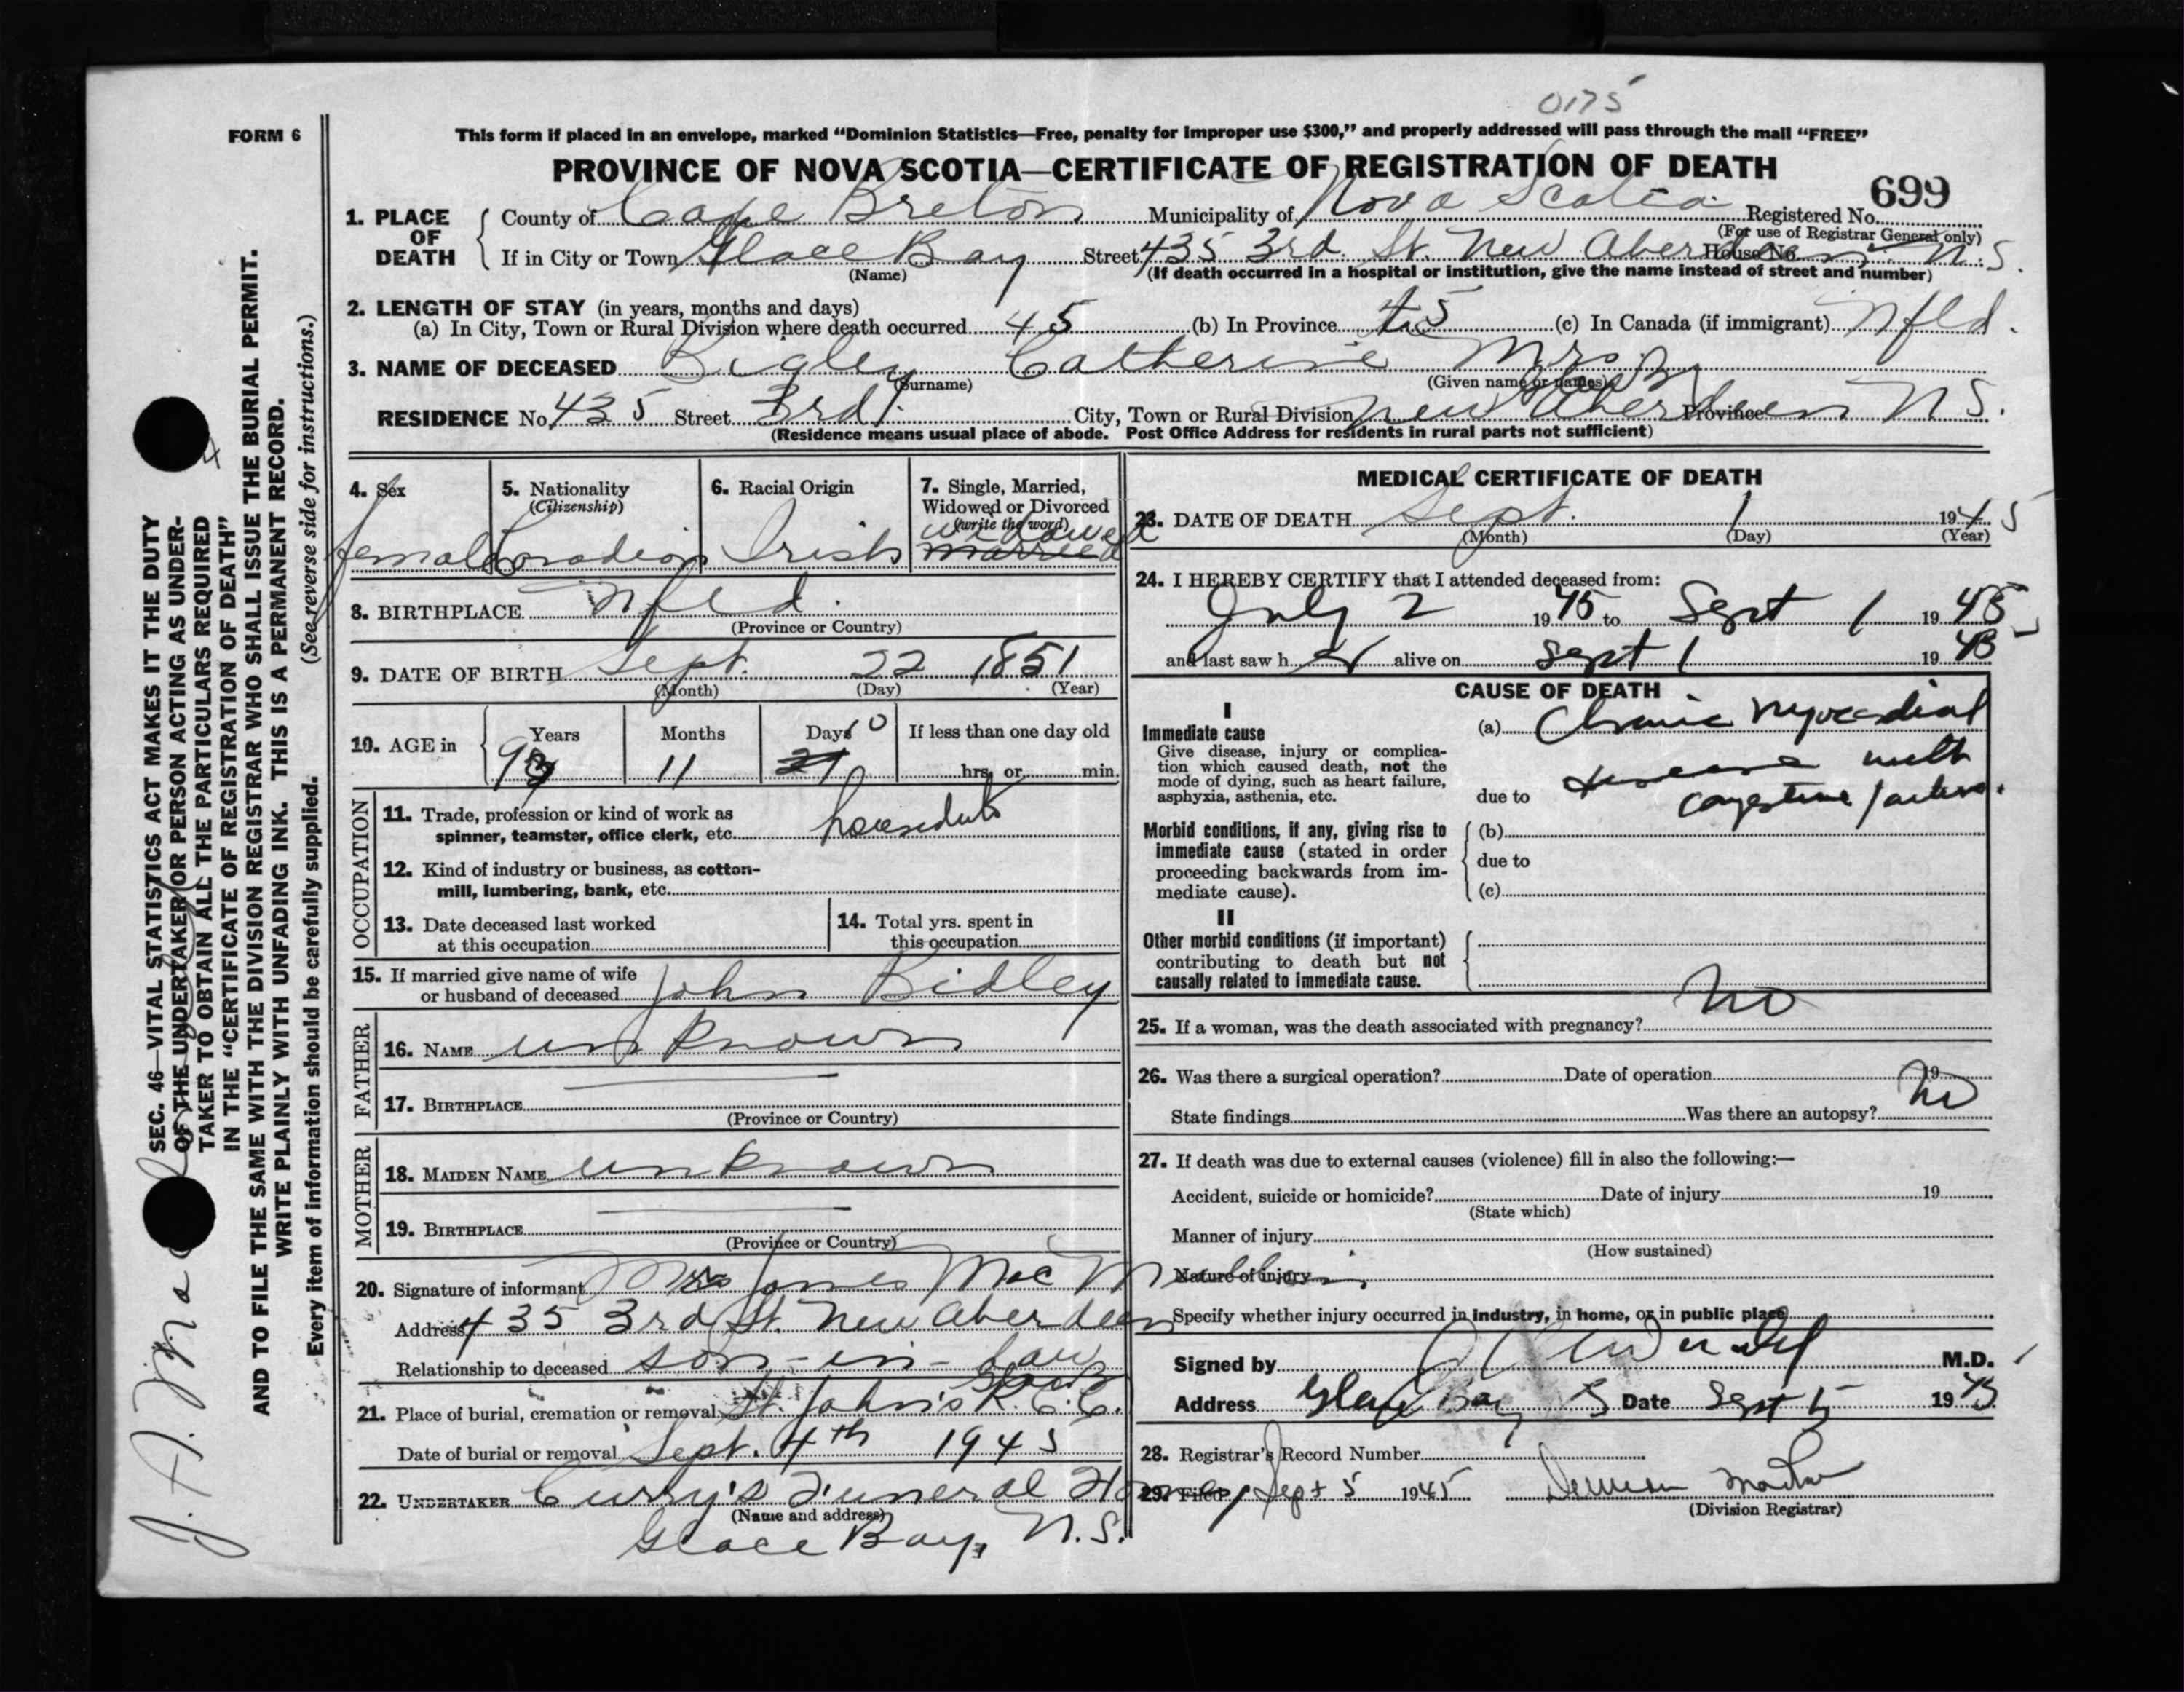 0175
FORM 6
This form if placed in an envelope, marked “Dominion Statistics—Free, penalty for improper use $300,” and properly addressed will pass through the mail “FREE”
PROVINCE OF NOVA SCOTIA—CERTIFICATE OF REGISTRATION OF DEATH
699
1. PLACE OF DEATH County of Cape Breton Municipality of Nova Scotia Registered No.
(For use of Registrar General only)
If in City or Town Glace Bay Street 435 3rd St. New Aberdeen N.S. House No.
(Name) (If death occurred in a hospital or institution, give the name instead of street and number)
2. LENGTH OF STAY (in years, months and days)
(a) In City, Town or Rural Division where death occurred 45 (b) In Province 45 (c) In Canada (if immigrant) Nfld.
3. NAME OF DECEASED Catherine Mrs
(Surname) (Given name or names)
RESIDENCE No. 435 Street 3rd City, Town or Rural Division New Aberdeen Province N S.
(Residence means usual place of abode. Post Office Address for residents in rural parts not sufficient)
4. Sex female
5. Nationality (Citizenship) Canadian
6. Racial Origin Irish
7. Single, Married, Widowed or Divorced (write the word) widowed married
8. BIRTHPLACE Nfld.
(Province or Country)
9. DATE OF BIRTH Sept. 22 1851
(Month) (Day) (Year)
10. AGE in Years 93 Months 11 Days 10 If less than one day old
hrs. or min.
OCCUPATION
11. Trade, profession or kind of work as
spinner, teamster, office clerk, etc.
12. Kind of industry or business, as cotton-
mill, lumbering, bank, etc.
13. Date deceased last worked
at this occupation
14. Total yrs. spent in
this occupation
15. If married give name of wife
or husband of deceased John Bidley
FATHER
16. NAME unknown
17. BIRTHPLACE
(Province or Country)
MOTHER
18. MAIDEN NAME unknown
19. BIRTHPLACE
(Province or Country)
20. Signature of informant Mrs James Mac
Address 435 3rd St. New Aberdeen
Relationship to deceased son-in-law
21. Place of burial, cremation or removal St. John's R.C.C.
Date of burial or removal Sept. 4th 1945
22. UNDERTAKER Curry's Funeral Home,
(Name and address)
Glace Bay, N.S.
MEDICAL CERTIFICATE OF DEATH
23. DATE OF DEATH Sept. 1 1945
(Month) (Day) (Year)
24. I HEREBY CERTIFY that I attended deceased from:
July 2 1945 to Sept 1 1945
and last saw h er alive on Sept 1 1945
CAUSE OF DEATH
I
Immediate cause
Give disease, injury or complica-
tion which caused death, not the
mode of dying, such as heart failure,
asphyxia, asthenia, etc.
(a) Chronic Myocardial
disease with
due to congestive failure.
Morbid conditions, if any, giving rise to
immediate cause (stated in order
proceeding backwards from im-
mediate cause).
(b)
due to
(c)
II
Other morbid conditions (if important)
contributing to death but not
causally related to immediate cause.
25. If a woman, was the death associated with pregnancy? no
26. Was there a surgical operation? Date of operation 19
State findings Was there an autopsy? no
27. If death was due to external causes (violence) fill in also the following:—
Accident, suicide or homicide? Date of injury 19
(State which)
Manner of injury
(How sustained)
Nature of injury
Specify whether injury occurred in industry, in home, or in public place
Signed by M.D.
Address Glace Bay Date Sept 5 1945
28. Registrar's Record Number
29. Filed Sept 5 1945
(Division Registrar)
SEC. 46—VITAL STATISTICS ACT MAKES IT THE DUTY
OF THE UNDERTAKER OR PERSON ACTING AS UNDER-
TAKER TO OBTAIN ALL THE PARTICULARS REQUIRED
IN THE “CERTIFICATE OF REGISTRATION OF DEATH”
AND TO FILE THE SAME WITH THE DIVISION REGISTRAR WHO SHALL ISSUE THE BURIAL PERMIT.
WRITE PLAINLY WITH UNFADING INK. THIS IS A PERMANENT RECORD.
Every item of information should be carefully supplied. (See reverse side for instructions.)